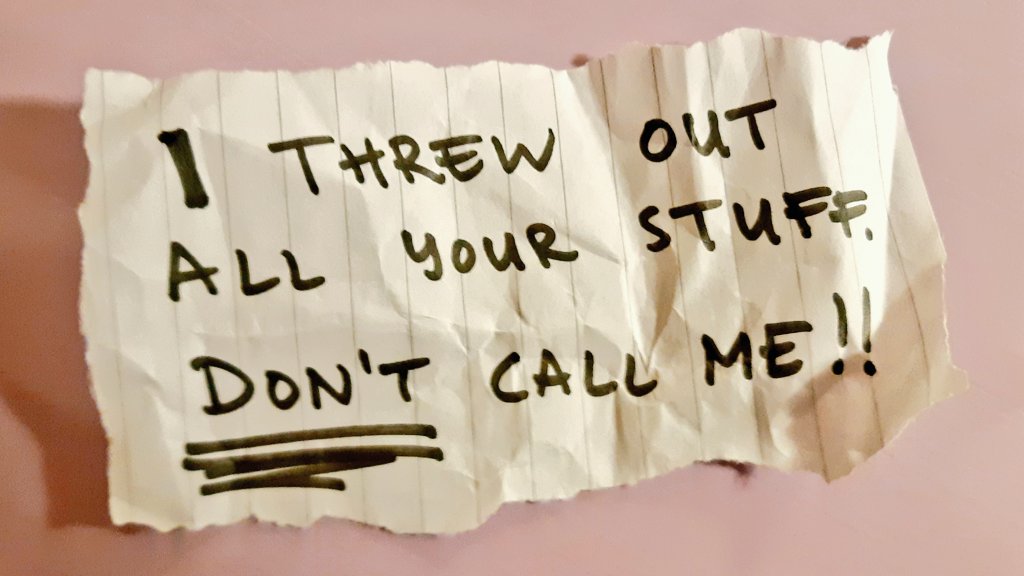 I THREW OUT
ALL YOUR STUFF.
DON'T CALL ME!!